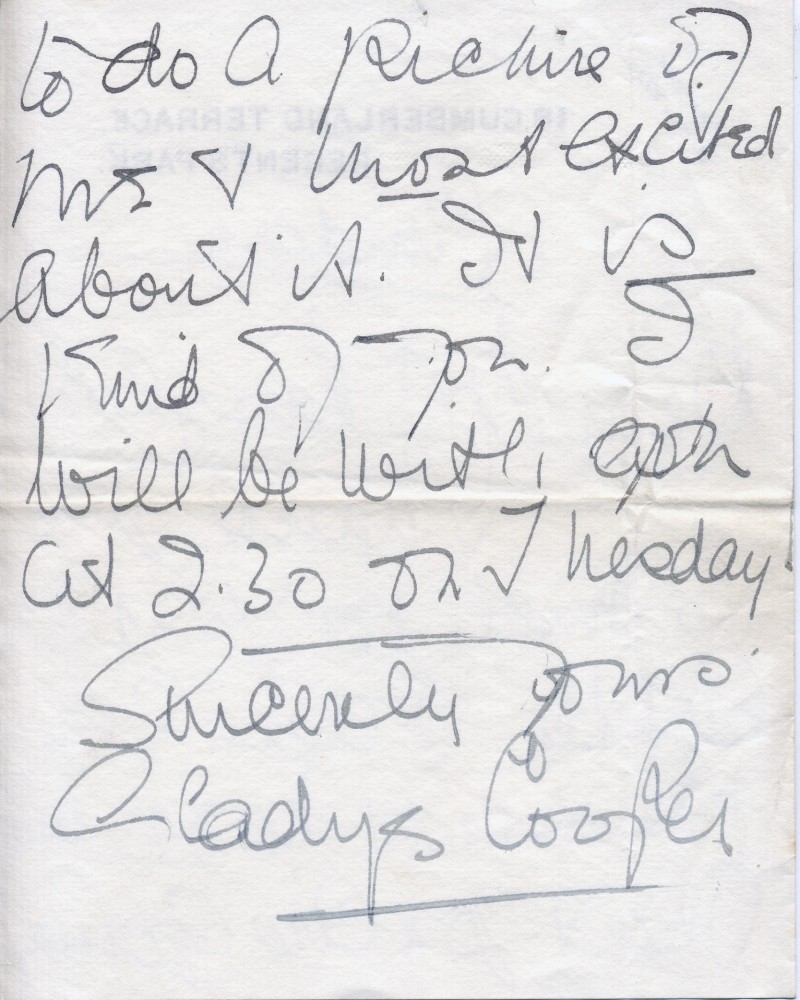 to do a picture of
me & most excited
about it. It is
kind of you. I
will be with you
at 2.30 on Tuesday.
Sincerely yours
Gladys Cooper
18 CUMBERLAND TERRACE
REGENTS PARK